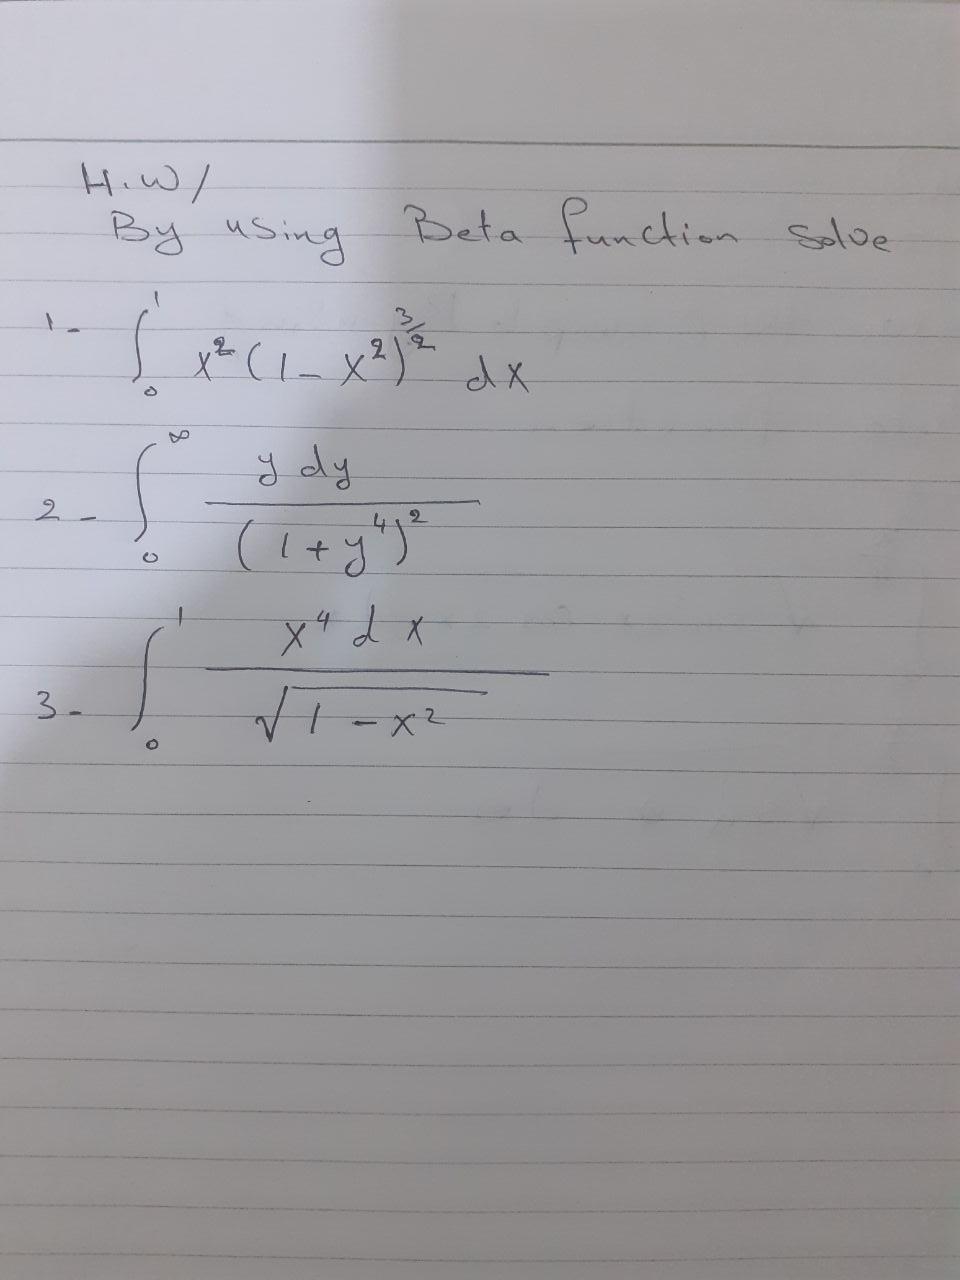 H.W/
By using Beta function solve
1- ∫₀¹ x² (1 - x²)^(3/2) dx
2- ∫₀^∞ y dy / (1 + y⁴)²
3- ∫₀¹ x⁴ dx / √(1 - x²)